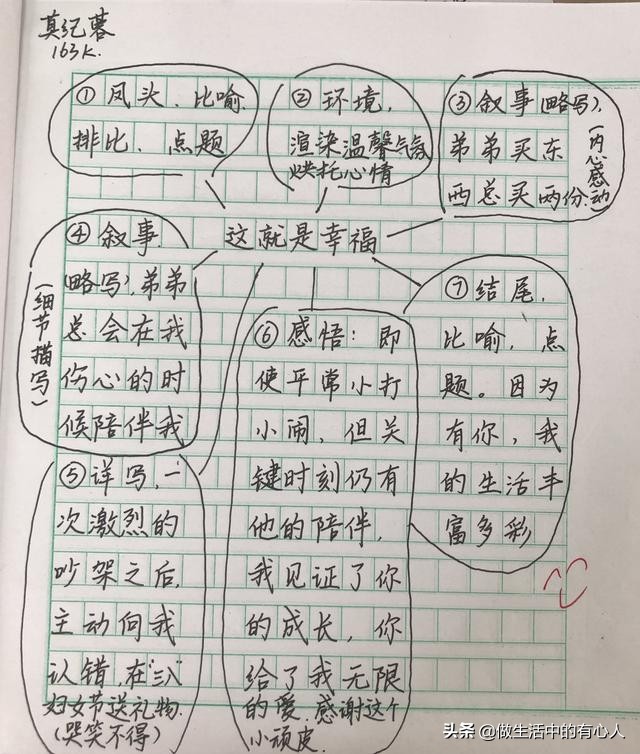 真纪蓉
163K.
①凤头、比喻
排比、点题
②环境,
渲染温馨气氛
烘托心情
③叙事(略写),
弟弟买东
西总买两份.
(内心感动)
这就是幸福
④叙事.
(略写),弟弟
总会在我
伤心的时
候陪伴我
(细节描写)
⑤详写,一
次激烈的
吵架之后,
主动向我
认错,在"三八"
妇女节送礼物.
(哭笑不得)
⑥感悟:即
使平常小打
小闹,但关
键时刻仍有
他的陪伴,
我见证了你
的成长,你
给了我无限
的爱.感谢这个
小顽皮.
⑦结尾,
比喻,点
题。因为
有你,我
的生活丰
富多彩
头条 @做生活中的有心人